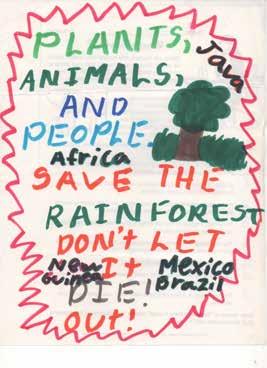 PLANTS, Java
ANIMALS,
AND
PEOPLE.
Africa
SAVE THE
RAINFOREST
DON't LET
New Guinea IT Mexico
DIE! Brazil
OUt!